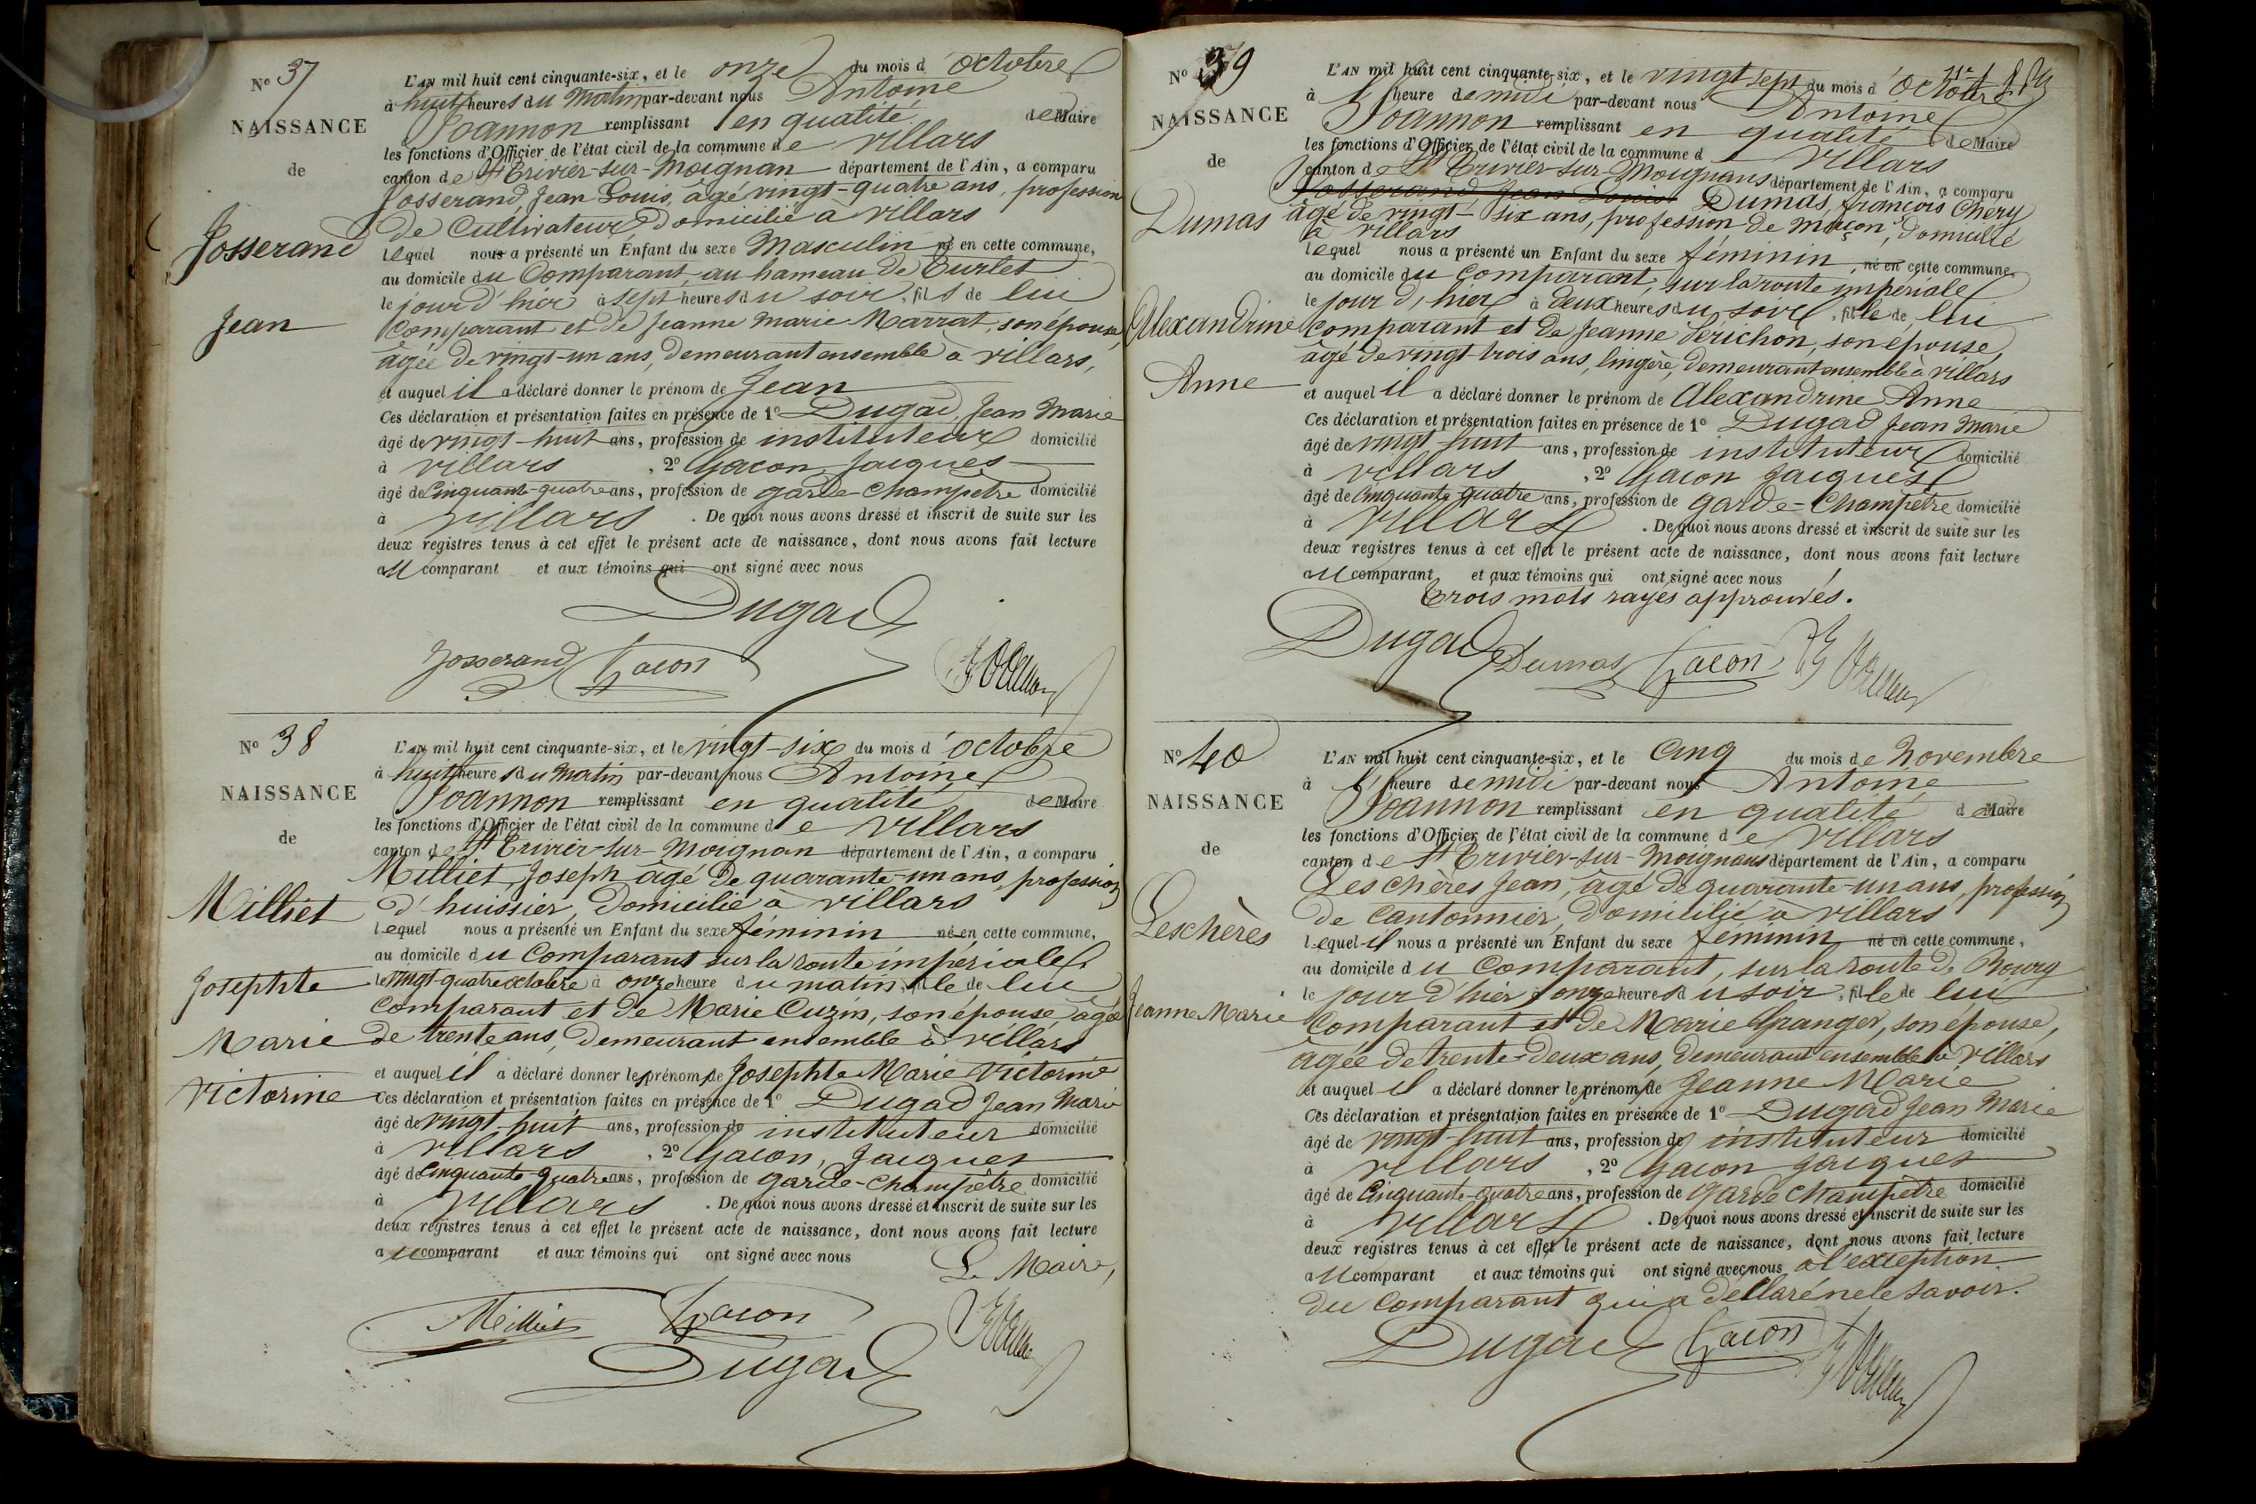 N° 37
NAISSANCE
de
Josserand
Jean
L'AN mil huit cent cinquante-six, et le onze du mois d'octobre
à huit heures du matin par-devant nous Antoine
Joannon remplissant en qualité de Maire
les fonctions d'Officier de l'état civil de la commune de Villars
canton de St Trivier-sur-Moignan département de l'Ain, a comparu
Josserand, Jean Louis, âgé vingt-quatre ans, profession
de Cultivateur domicilié à Villars
lequel nous a présenté un Enfant du sexe Masculin né en cette commune,
au domicile du Comparant, au hameau de Turlet
le jour d'hier à sept heures du soir, fils de lui
Comparant et de Jeanne Marie Marrat, son épouse,
âgée de vingt-un ans, demeurant ensemble à Villars,
et auquel il a déclaré donner le prénom de Jean
Ces déclaration et présentation faites en présence de 1° Dugad, Jean Marie
âgé de vingt-huit ans, profession de instituteur domicilié
à Villars, 2° Gacon, Jacques
âgé de Cinquante-quatre ans, profession de garde-Champêtre domicilié
à Villars. De quoi nous avons dressé et inscrit de suite sur les
deux registres tenus à cet effet le présent acte de naissance, dont nous avons fait lecture
au comparant et aux témoins qui ont signé avec nous
Dugad
Josserand Gacon Joannon
N° 38
NAISSANCE
de
Milliet
Josephte
Marie
Victorine
L'AN mil huit cent cinquante-six, et le vingt-six du mois d'octobre
à huit heures du matin par-devant nous Antoine
Joannon remplissant en qualité de Maire
les fonctions d'Officier de l'état civil de la commune de Villars
canton de St Trivier-sur-Moignan département de l'Ain, a comparu
Milliet, Joseph âgé de quarante-un ans, profession
d'huissier, domicilié à Villars
lequel nous a présenté un Enfant du sexe féminin né en cette commune,
au domicile du Comparant sur la route impériale
le vingt-quatre octobre à onze heure du matin, fille de lui
Comparant et de Marie Cuzin, son épouse âgée
de trente ans, demeurant ensemble à Villars
et auquel il a déclaré donner le prénom de Josephte Marie Victorine
Ces déclaration et présentation faites en présence de 1° Dugad Jean Marie
âgé de vingt-huit ans, profession de instituteur domicilié
à Villars, 2° Gacon, Jacques
âgé de Cinquante-quatre ans, profession de garde-Champêtre domicilié
à Villars. De quoi nous avons dressé et inscrit de suite sur les
deux registres tenus à cet effet le présent acte de naissance, dont nous avons fait lecture
au comparant et aux témoins qui ont signé avec nous
Le Maire,
Milliet Gacon Joannon
Dugad
N° 39
NAISSANCE
de
Dumas
Alexandrine
Anne
L'AN mil huit cent cinquante-six, et le vingt sept du mois d'octobre
à 1 heure de midi par-devant nous Antoine
Joannon remplissant en qualité de Maire
les fonctions d'Officier de l'état civil de la commune d Villars
canton de St Trivier-sur-Moignans département de l'Ain, a comparu
Josserand Jean Louis Dumas, françois Chéry
âgé de vingt-six ans, profession de maçon, domicilié
à Villars
lequel nous a présenté un Enfant du sexe féminin, né en cette commune,
au domicile du Comparant, sur la route impériale
le jour d'hier à deux heures du soir, fille de lui
Comparant et de Jeanne Sérichon, son épouse,
âgé de vingt-trois ans, lingère, demeurant ensemble à Villars
et auquel il a déclaré donner le prénom de Alexandrine Anne
Ces déclaration et présentation faites en présence de 1° Dugad Jean Marie
âgé de vingt-huit ans, profession de instituteur domicilié
à Villars, 2° Gacon Jacques
âgé de Cinquante-quatre ans, profession de garde-Champêtre domicilié
à Villars. De quoi nous avons dressé et inscrit de suite sur les
deux registres tenus à cet effet le présent acte de naissance, dont nous avons fait lecture
au comparant et aux témoins qui ont signé avec nous
Trois mots rayés approuvés.
Dugad Dumas Gacon Joannon
N° 40
NAISSANCE
de
Leschères
Jeanne Marie
L'AN mil huit cent cinquante-six, et le Cinq du mois de Novembre
à 1 heure de midi par-devant nous Antoine
Joannon remplissant en qualité de Maire
les fonctions d'Officier de l'état civil de la commune de Villars
canton de St Trivier-sur-Moignans département de l'Ain, a comparu
Leschères Jean, âgé de quarante-un ans, profession
de Cantonnier, domicilié à Villars
lequel il nous a présenté un Enfant du sexe féminin né en cette commune,
au domicile du Comparant, sur la route de Bourg
le jour d'hier à onze heures du soir, fille de lui
Comparant et de Marie Granger, son épouse,
âgée de trente-deux ans, demeurant ensemble à Villars
et auquel il a déclaré donner le prénom de Jeanne Marie
Ces déclaration et présentation faites en présence de 1° Dugad Jean Marie
âgé de vingt-huit ans, profession de instituteur domicilié
à Villars, 2° Gacon Jacques
âgé de Cinquante-quatre ans, profession de garde Champêtre domicilié
à Villars. De quoi nous avons dressé et inscrit de suite sur les
deux registres tenus à cet effet le présent acte de naissance, dont nous avons fait lecture
au comparant et aux témoins qui ont signé avec nous à l'exception
du Comparant qui a déclaré ne le savoir.
Dugad Gacon Joannon